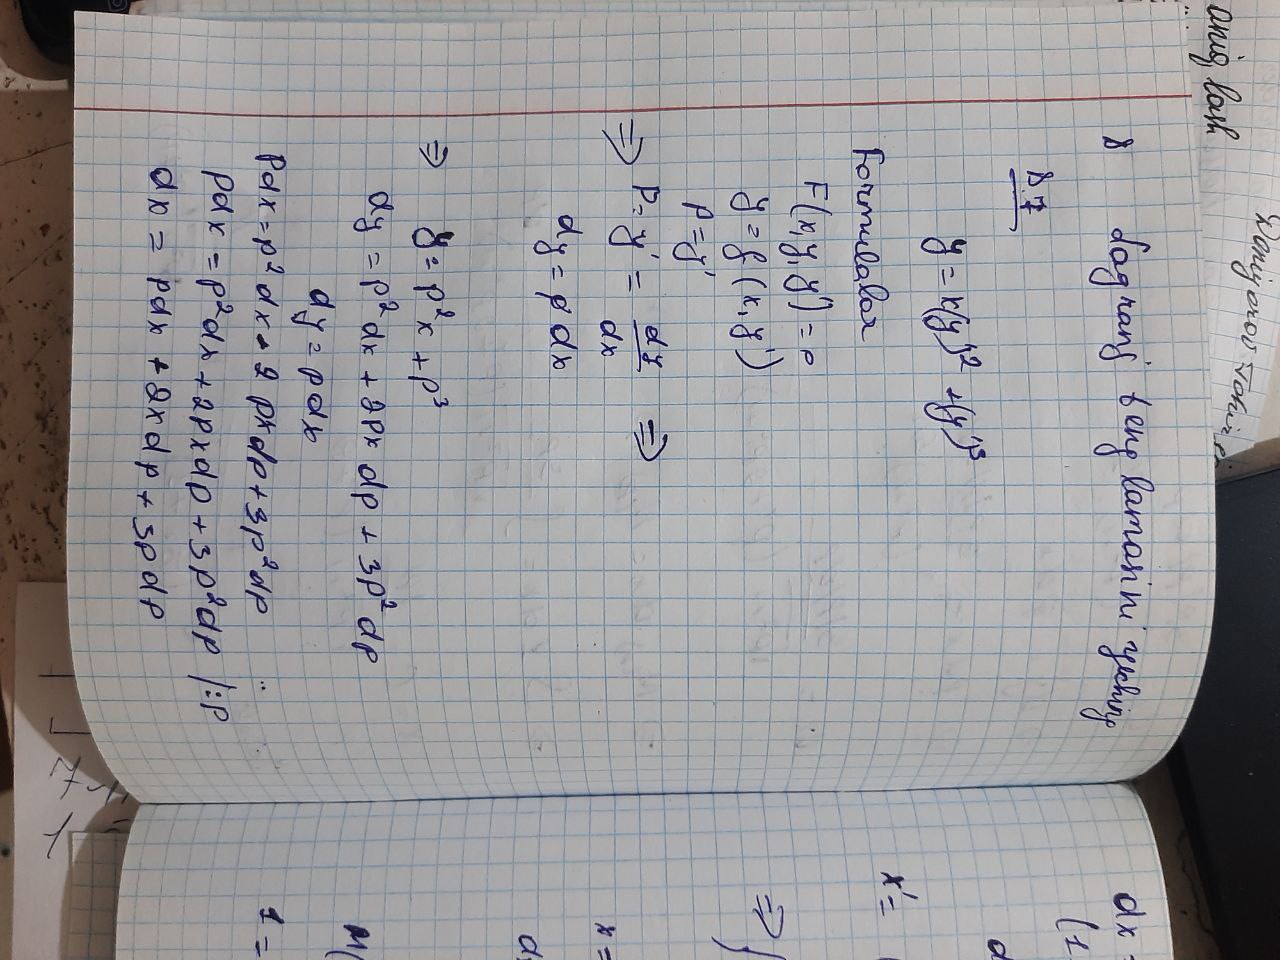 8 Lagranj tenglamasini yeching
8.7
y = x(y')² + (y')³
Formulalar
F(x, y, y') = 0
y = f(x, y')
p = y'
⇒ p = y' = dy/dx ⇒
dy = p dx
⇒ y = p²x + p³
dy = p²dx + 2px dp + 3p²dp
dy = p dx
pdx = p²dx + 2pxdp + 3p²dp
pdx = p²dx + 2pxdp + 3p²dp |:p
dx = pdx + 2xdp + 3pdp
dx =
(1
x' =
⇒ {
x =
M(
1 =
aniq lash